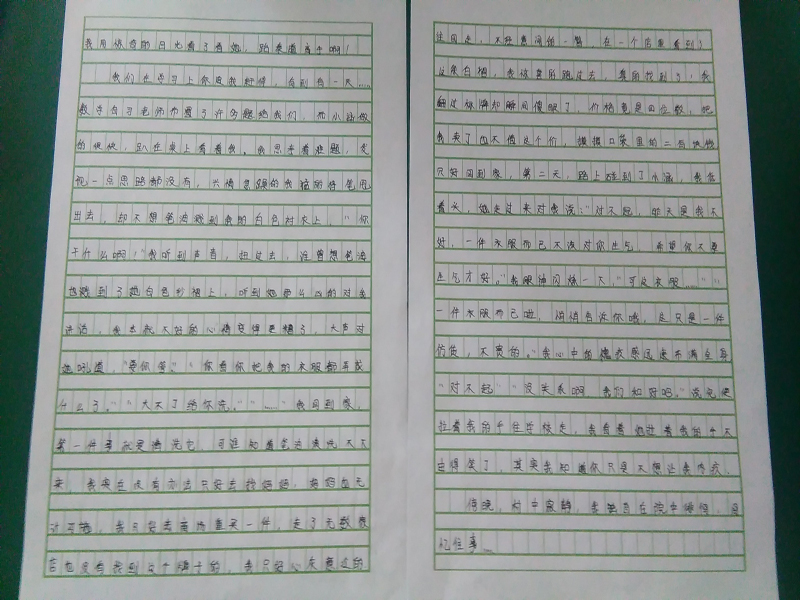 我用惊奇的目光看了看她，
我们在学习上你追我赶，直到有一天……
数学自习老师布置了许多题给我们，而小涵做
的快快，趴在桌上看着我。我思考着难题，发
现一点思路都没有，兴情急躁的我猛的将笔甩
出去，却不想笔油溅到我的白色衬衣上，“你
干什么啊！”我听到声音，扭过去，没曾想笔油
也溅到了她白色纱裙上，听到她带么么的对我
讲话，我本就不好的心情变得更糟了，大声对
她吼道，“要你管。”“你看你把我的衣服都弄成
什么了。”“大不了给你洗。”“……”我回到家，
第一件事就是清洗它，可谁知道笔油洗不下
来，我实在没有办法只好去找妈妈，妈妈也无
计可施，我只好去商场重买一件，走了无数家
店也没有找到这个牌子的，我只好心灰意冷的
往回走，不经意间的一瞥，在一个店里看到了
这条白裙，我欣喜的跑过去，真的找到了！我
翻过标牌却瞬间傻眼了，价格竟是四位数，把
我卖了也不值这个价，摸摸口袋里的二百块钱
只好回到家，第二天，路上碰到了小涵，我低
着头，她走过来对我说：“对不起，那天是我不
好，一件衣服而已不该对你生气，希望你不要
生气才好。”我眼神闪烁一下，“可这衣服……”“
一件衣服而已啦，悄悄告诉你哦，这只是一件
仿货，不贵的。”我心中的愧疚感迅速布满全身
“对不起”“没关系啊，我们和好吗。”说完便
拉着我的手往学校走，我看着她拉着我的手不
由得笑了，其实我知道你只是不想让我内疚。
傍晚，村中寂静，我独自在院中
忆往事…